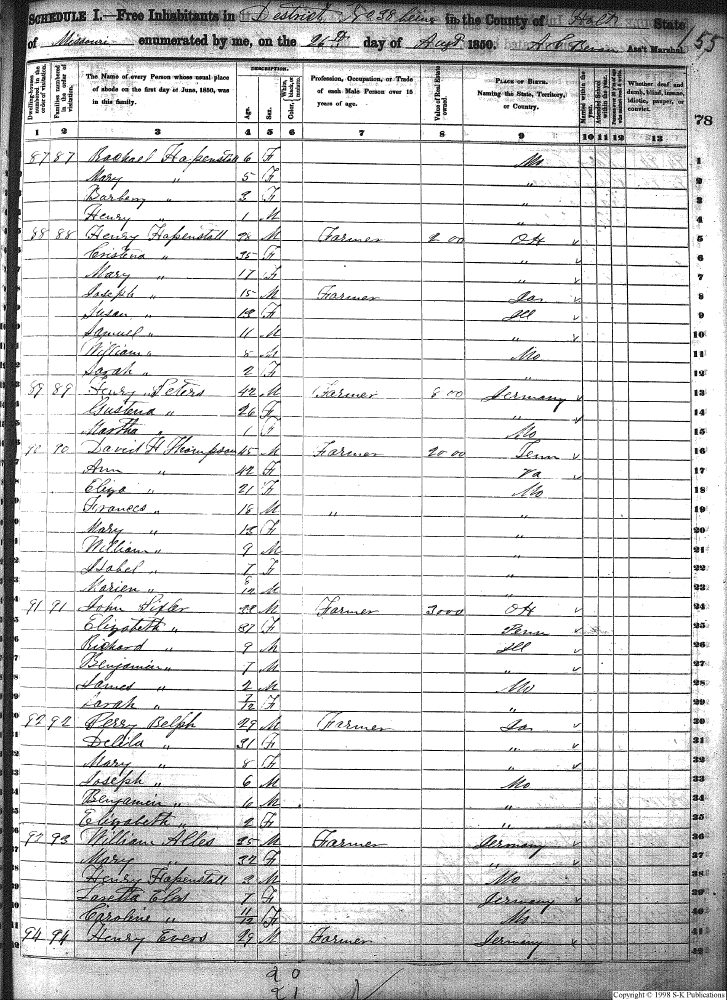 SCHEDULE I.—Free Inhabitants in District No 38 being in the County of Holt State
of Missouri enumerated by me, on the 26th day of Augt 1850. Ass't Marshal.
155
78
DESCRIPTION.
Dwelling-houses numbered in the order of visitation.
Families numbered in the order of visitation.
The Name of every Person whose usual place of abode on the first day of June, 1850, was in this family.
Age.
Sex.
Color, White, black, or mulatto.
Profession, Occupation, or Trade of each Male Person over 15 years of age.
Value of Real Estate owned.
PLACE OF BIRTH. Naming the State, Territory, or Country.
Married within the year.
Attended School within the year.
Whether deaf and dumb, blind, insane, idiotic, pauper, or convict.
1 2 3 4 5 6 7 8 9 10 11 12 13
87 87 Rachael Hapenstall 6 F Mo 1
Mary " 5 F " 2
Barbary " 3 F " 3
Henry " 1 M " 4
88 88 Henry Hapenstall 38 M Farmer 200 OH 5
Cristena " 35 F " 6
Mary " 17 F " 7
Joseph " 15 M Farmer Ia 8
Susan " 13 F Ill 9
Samuel " 11 M " 10
William " 5 M Mo 11
Sarah " 2 F " 12
89 89 Henry Peters 42 M Farmer 800 Germany 13
Cristena " 26 F " 14
Martha " F Mo 15
90 90 David H Thompson 45 M Farmer 2000 Tenn 16
Ann " 42 F Va 17
Eliza " 21 F Mo 18
Frances " 18 M " " 19
Mary " 13 F " 20
William " 9 M " 21
Isabel " 7 F " 22
Marien " 6/12 M " 23
91 91 John Sifler 38 M Farmer 3000 OH 24
Elizabeth " 37 F Penn 25
Richard " 9 M Ill 26
Benjamin " 7 M " 27
James " 2 M Mo 28
Sarah " 7/12 F " 29
92 92 Perry Belph 29 M Farmer Ia 30
Delila " 31 F " 31
Mary " 8 F " 32
Joseph " 6 M Mo 33
Benjamin " 6 M " 34
Elizabeth " 2 F " 35
93 93 William Alles 35 M Farmer Germany 36
Mary " 32 F " 37
Henry Hapenstall 3 M Mo 38
Laretta Eles 7 F Germany 39
Caroline " 11/12 F Mo 40
94 94 Henry Evers 29 M Farmer Germany 42
20
21
Copyright © 1998 S-K Publications